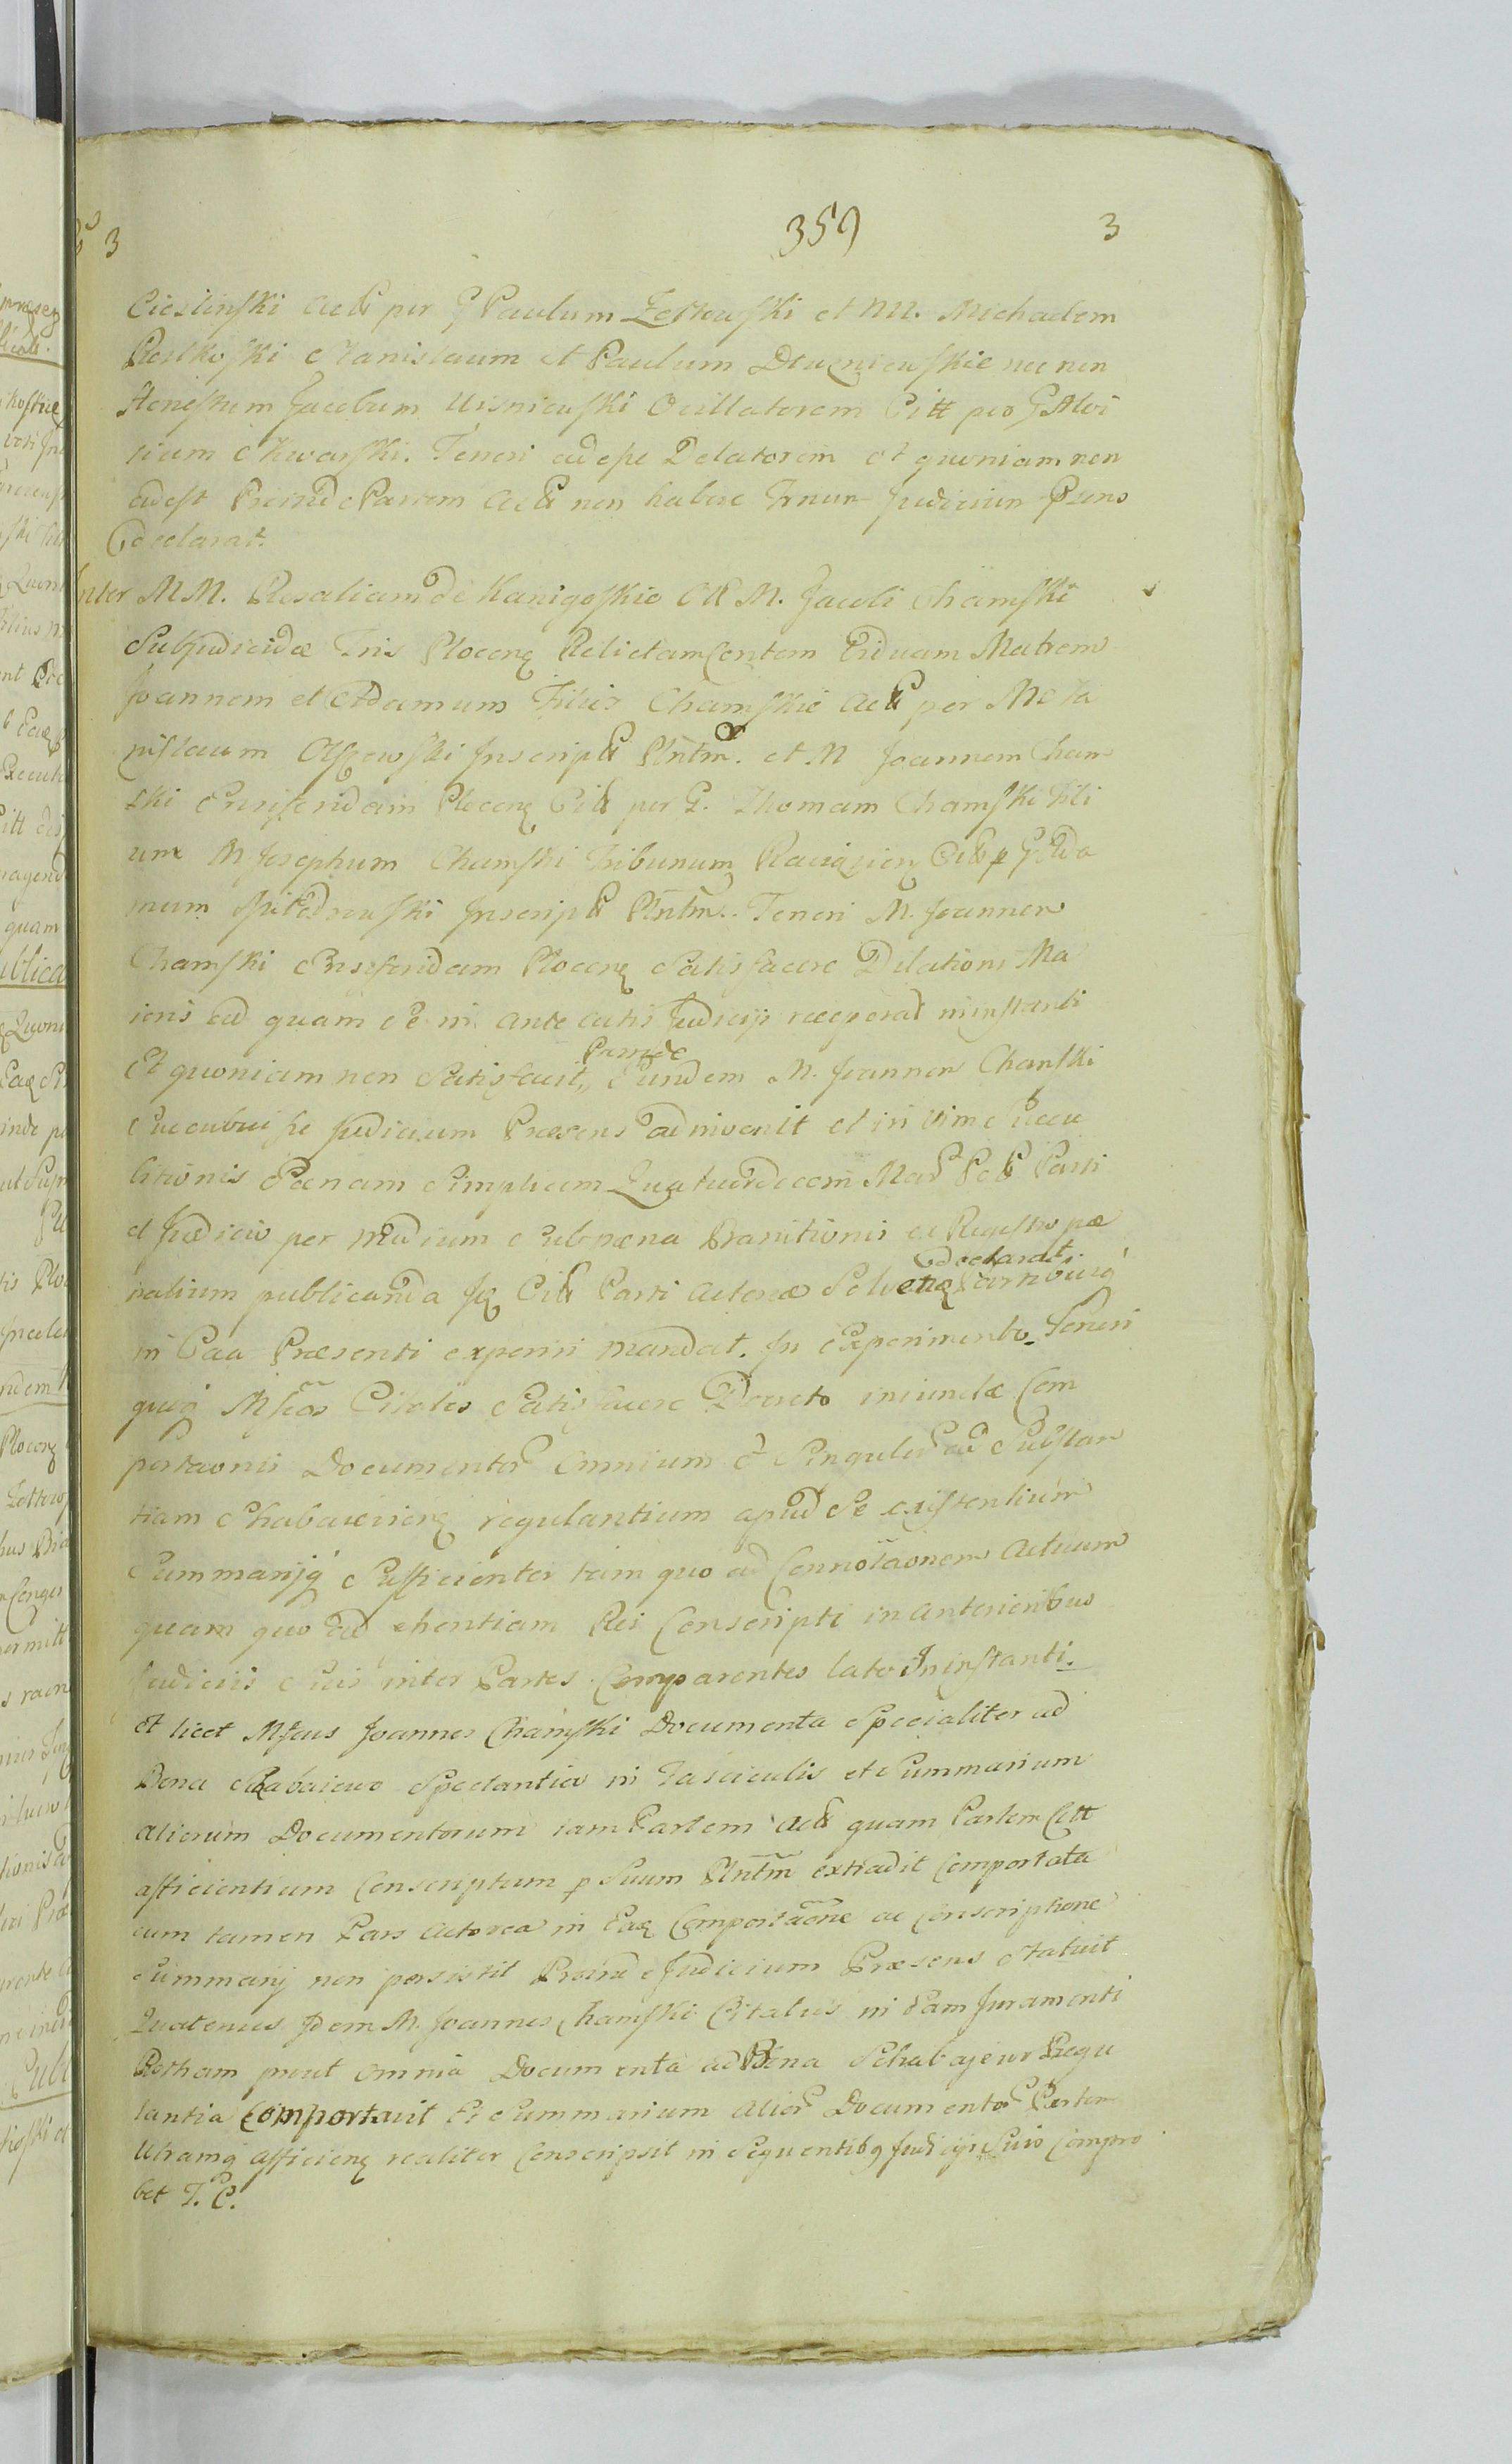 3 359 3
Cieslinski Act per G Paulum Zottowski et MM. Michaelem
Rostkoski Stanislaum et Paulum nec non
Honestum Jacobum Wisniewski Citt pro G Aloi
sium Skwarski. Teneri adesse Delatorem et quoniam non
adest Proinde Partem Act non habere Judicium Psens
declarat.
Inter MM. Rosaliam de Kanigoskie Olt M. Jacobi Chamski
Subjudicidæ Tris Plocens Relictam Consortem Viduam Matrem
Joannem et Adamum Filios Chamskie Act per M Sta
nislaum Olszewski Inscript Plntm. et M Joannem Cham
ski Ensiferidam Plocens Citt per G. Thomam Chamski Fili
um M Josephum Chamski Tribunum Raciazien Citt p G Ada
mum Inscript Plntm. Teneri M. Joannem
Chamski Ensiferidam Plocens Satisfacere Dilationi Ma
ioris ad quam se in ante actis Judicijs receperat in instanti
Et quoniam non Satisfacit, Proinde Eundem M. Joannem Chamski
Succubuisse Judicium Præsens adinvenit et in vim Succu
bitionis Pœnam Simplicem Quatuordecem Mar Pol Parti
et Judicio per medium Sub pœna Banitionis ex Regestro pœ
nalium publicanda p Citt Parti Actoreæ Solvens declarat
in Caa Præsenti experiri mandat. In Experimento Teneri
Mfcos Citatos Satisfacere Decreto iniunctæ Com
portaonis Documentor omnium et Singulor ad Substan
tiam Schabaiewiens regulantium apud Se existentium
Summarijq Sufficienter tam quo ad Connotaonem Actuum
quam quo ad essentiam Rei Conscripti in anterioribus
Judiciis Suis inter Partes Comparentes lato In instanti.
et licet Mfcus Joannes Chamski Documenta Specialiter ad
Bona Schabaiewo Spectantia in Fasciculis et Summarium
aliorum Documentorum tam Partem Act quam Partem Citt
afficientium Conscriptum p Suum Plntm extradit Comportata
cum tamen Pars Actorea in Eas Comportaone ac Conscriptione
Summarij non persistit Proinde Judicium Præsens Statuit
Quatenus Idem M. Joannes Chamski Citatus in Eam Juramenti
Rotham prout omnia Documenta ad Bona Schabajewo Regu
lantia Comportavit Et Summarium alior Documentor Partem
Utramq afficiens realiter Conscripsit in Sequentibq Judicijs Suis Compro
bet T. C.